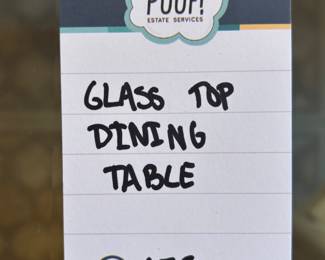 POOF!
ESTATE SERVICES
GLASS TOP
DINING
TABLE